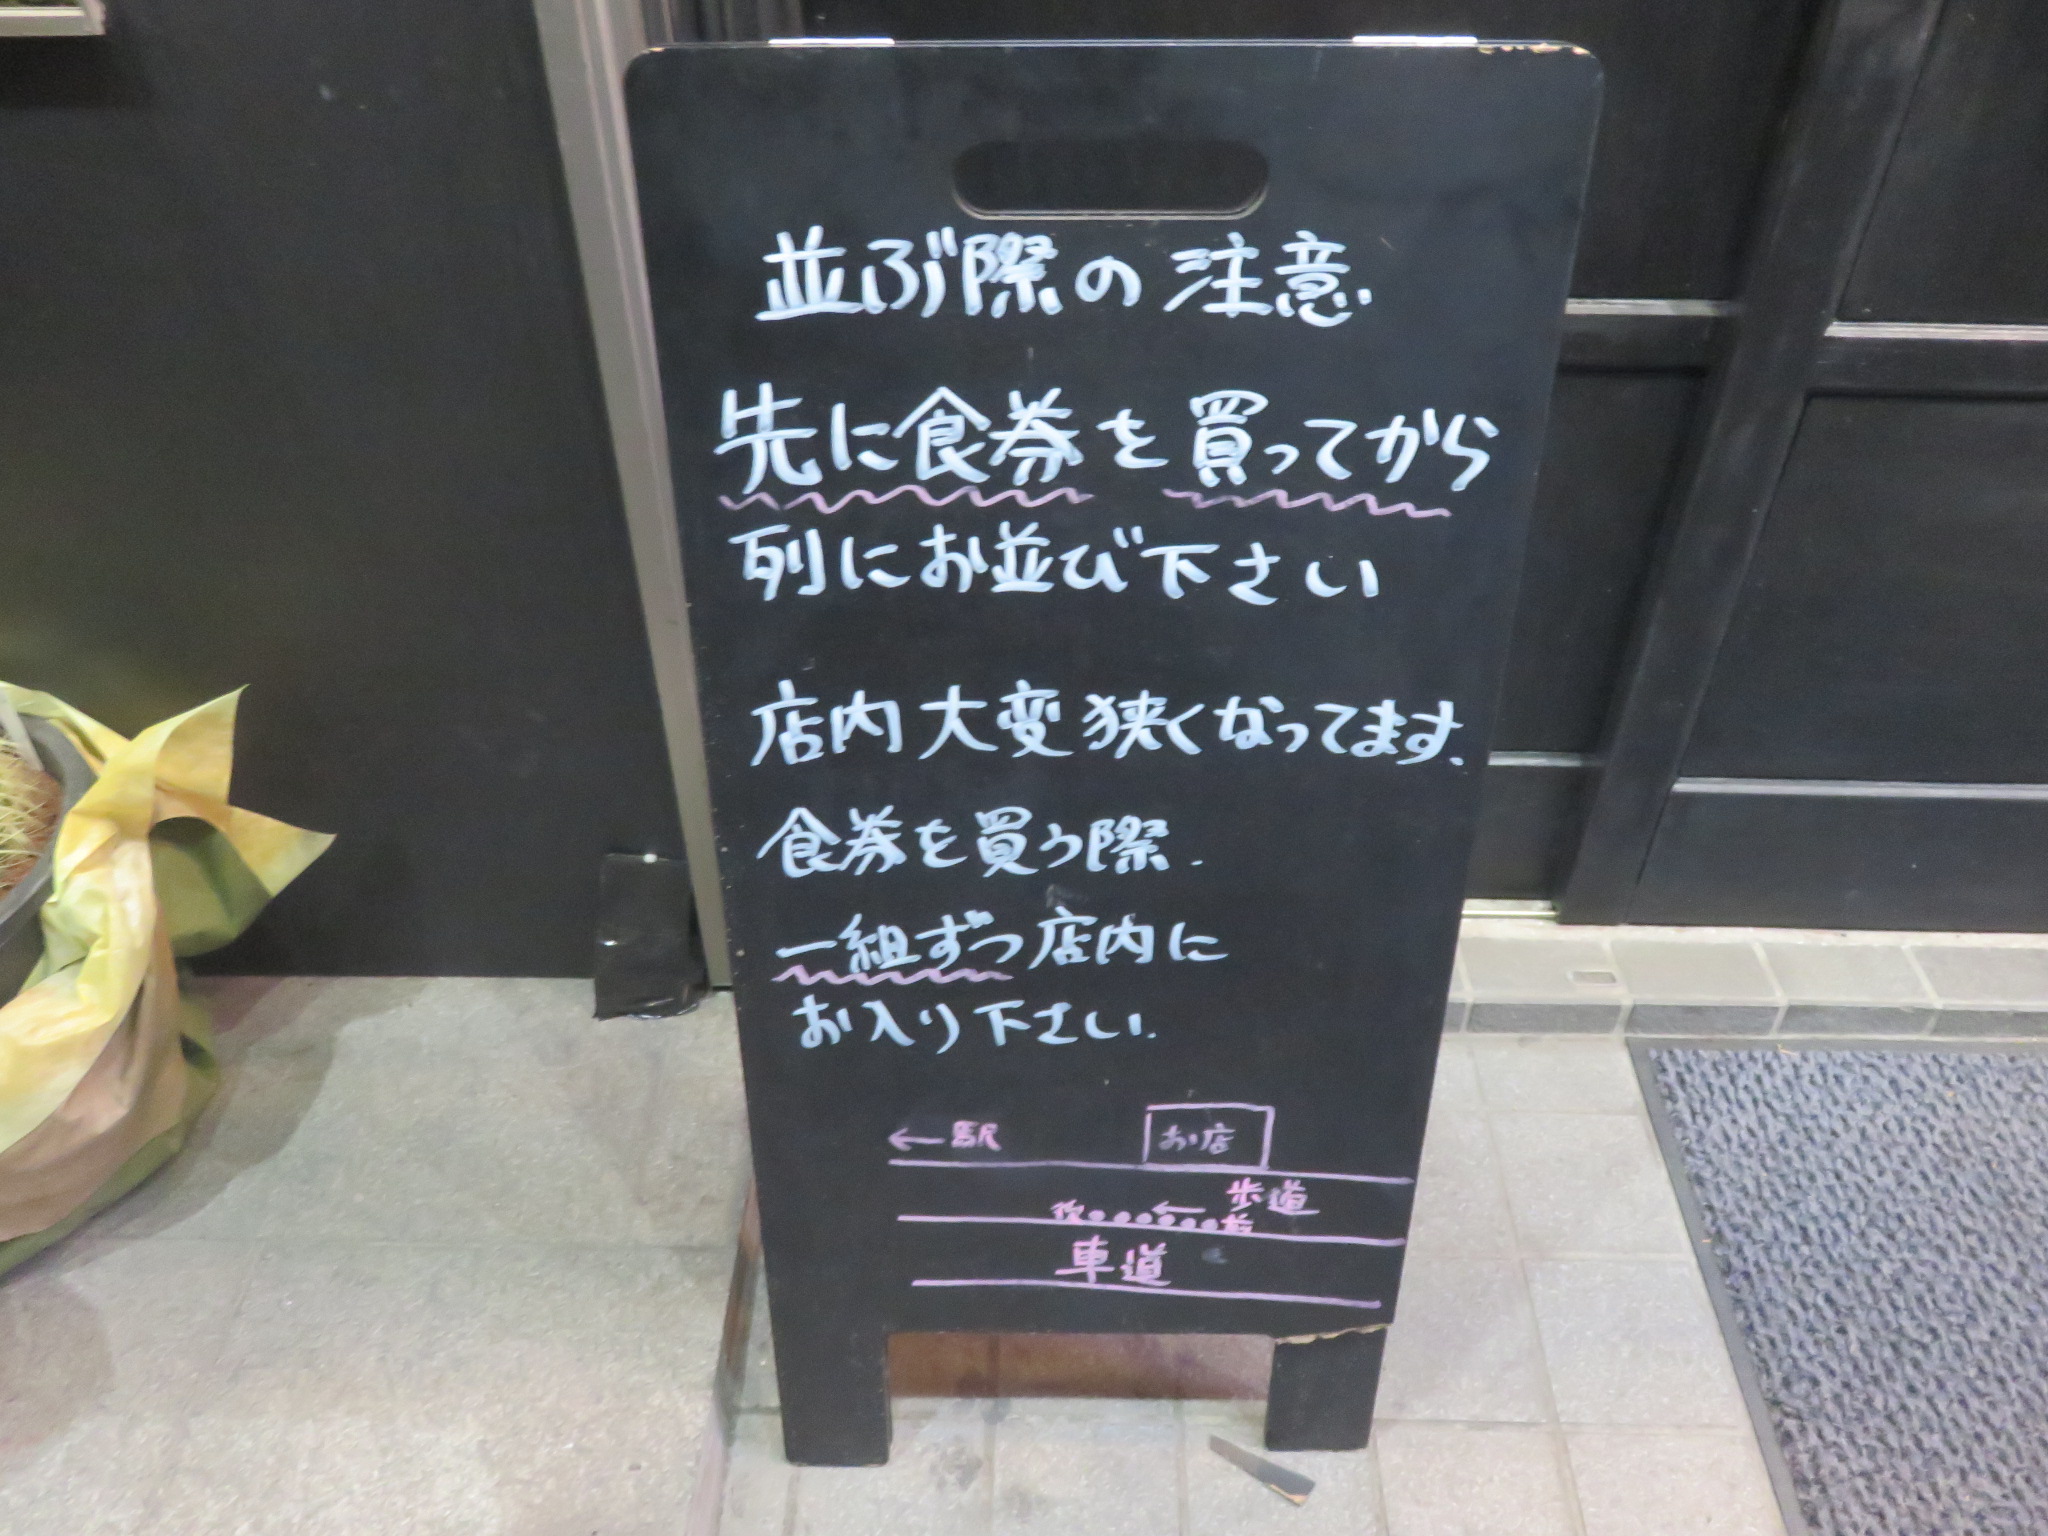 並ぶ際の注意
先に食券を買ってから
列にお並び下さい
店内大変狭くなってます.
食券を買う際.
一組ずつ店内に
お入り下さい.
←駅 お店
歩道
後 ← 前
車道